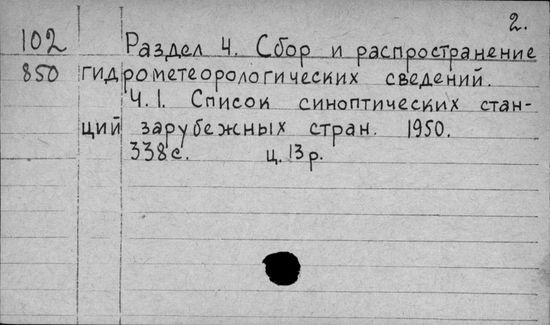 2.
102 Раздел 4. Сбор и распространение
850 гидрометеорологических сведений.
Ч.1. Список синоптических стан-
ций зарубежных стран. 1950.
338 с. ц. 13 р.